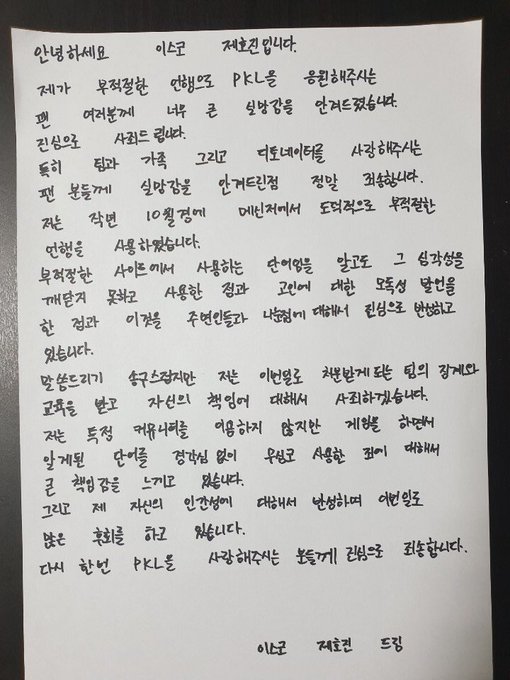 안녕하세요 이스코 제호진입니다.
제가 부적절한 언행으로 PKL을 응원해주시는
팬 여러분께 너무 큰 실망감을 안겨드렸습니다.
진심으로 사죄드립니다.
특히 팀과 가족 그리고 디토네이터를 사랑해주시는
팬 분들께 실망감을 안겨드린점 정말 죄송합니다.
저는 작년 10월경에 메신저에서 도덕적으로 부적절한
언행을 사용하였습니다.
부적절한 사이트에서 사용하는 단어임을 알고도 그 심각성을
깨닫지 못하고 사용한 점과 고인에 대한 모독성 발언을
한 점과 이것을 주변인들과 나눈점에 대해서 진심으로 반성하고
있습니다.
말씀드리기 송구스럽지만 저는 이번일로 처분받게 되는 팀의 징계와
교육을 받고 자신의 책임에 대해서 사죄하겠습니다.
저는 특정 커뮤니티를 이용하지 않지만 게임을 하면서
알게된 단어를 경각심 없이 무심코 사용한 죄에 대해서
큰 책임감을 느끼고 있습니다.
그리고 제 자신의 인간성에 대해서 반성하며 이번일로
많은 후회를 하고 있습니다.
다시 한번 PKL을 사랑해주시는 분들께 진심으로 죄송합니다.
이스코 제호진 드림